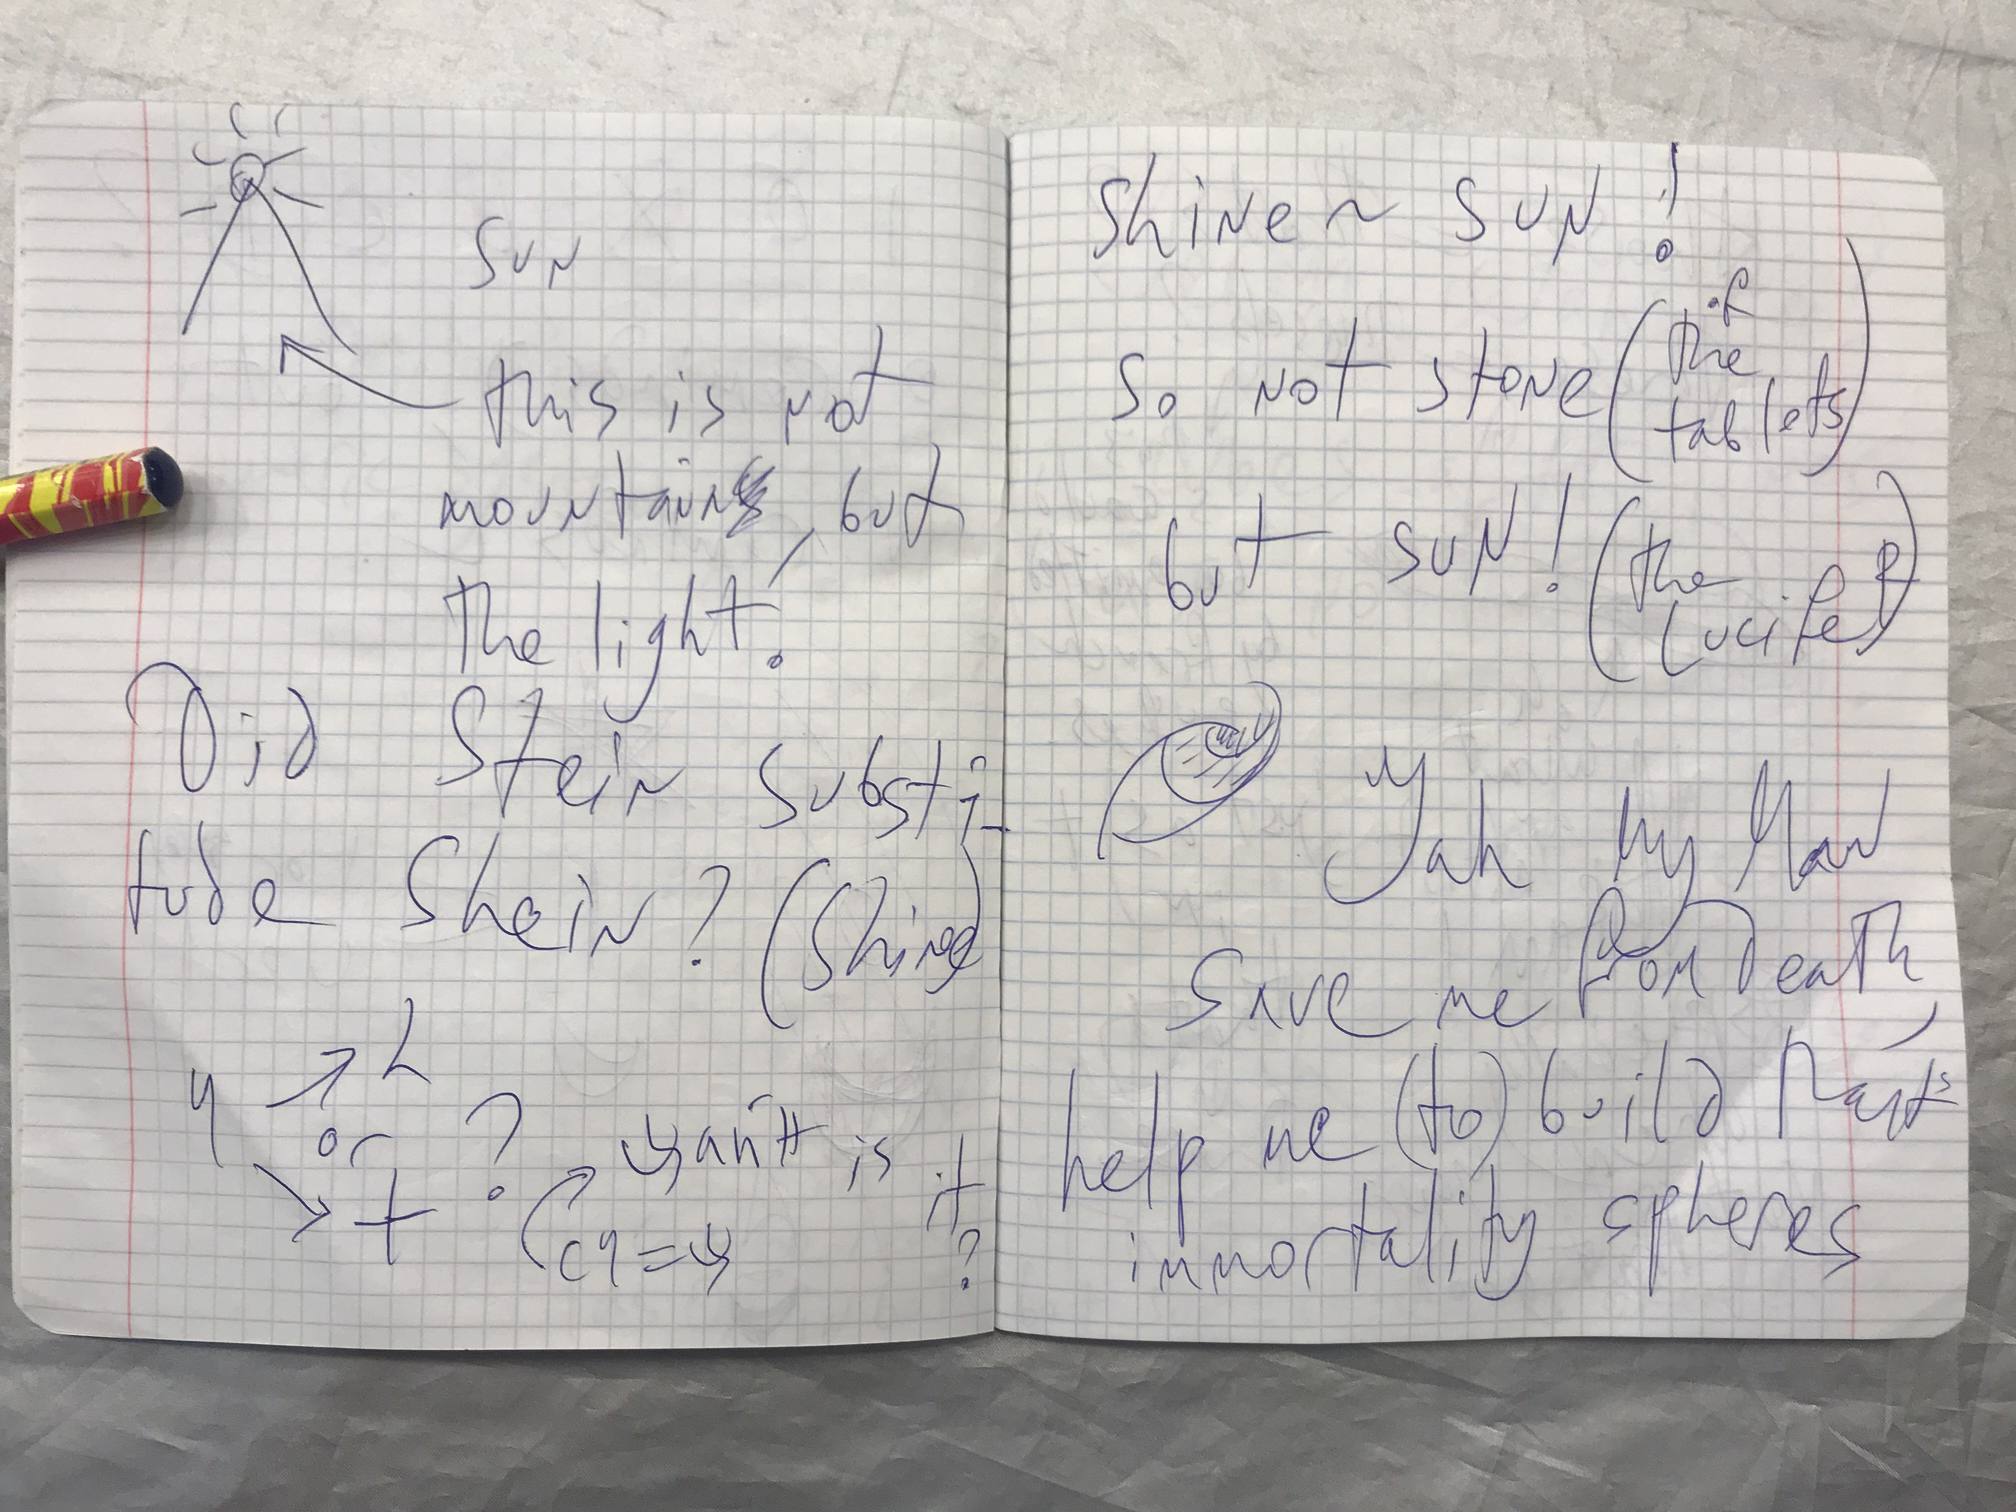 SUN
this is not
mountain, but
the light!
Did Stein substi-
tude Shein? (Shine)
4 h
or ?
+ is it
c4 = ?
Shine ~ SUN!
So not stone (of the tablets)
but SUN! (the Lucifer)
Yah my Man
Save me from Death,
help me (to) build
immortality spheres